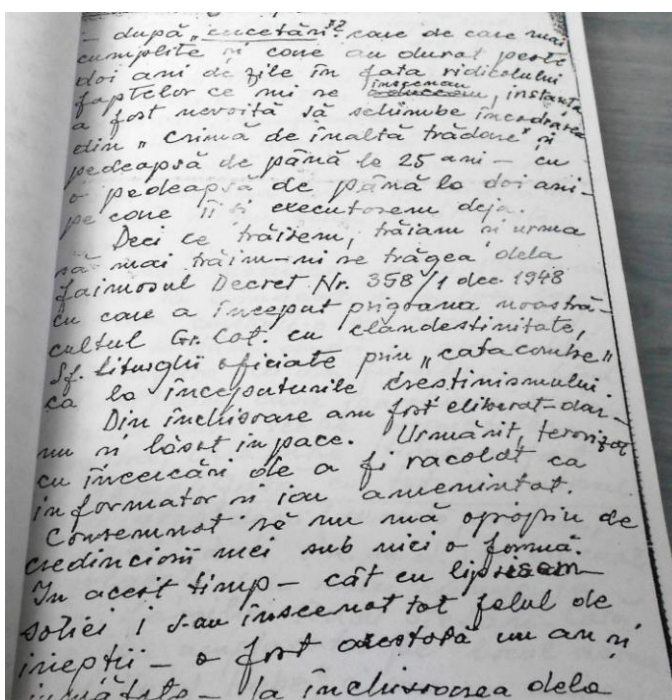 - după „cucetări" care de care mai
cumplite și care au durat peste
doi ani de zile în fața ridicolului
faptelor ce mi se însenau, instanța
a fost nevoită să schimbe încadrarea
din „crimă de înaltă trădare" și
pedeapsă de până la 25 ani - cu
o pedeapsă de până la doi ani -
pe care îi și executasem deja.
Deci ce trăisem, trăiam și urma
să mai trăim - ni se trăgea dela
faimosul Decret Nr. 358/1 dec. 1948
cu care a început prigoana noastră -
cultul Gr. Cat. cu clandestinitate,
Sf. liturghii oficiate prin „catacombe"
ca la începuturile creștinismului.
Din închisoare am fost eliberat - dar -
nu și lăsat in pace. Urmărit, terorizat
cu încercări de a fi racolat ca
informator și iar amenințat.
Consemnat să nu mă apropiu de
credincioșii mei sub nici o formă.
In acest timp - cât eu lipseam
soliei i s-au înscenat tot felul de
inepții - a fost arestată un an și
jumătate - la închisoarea dela